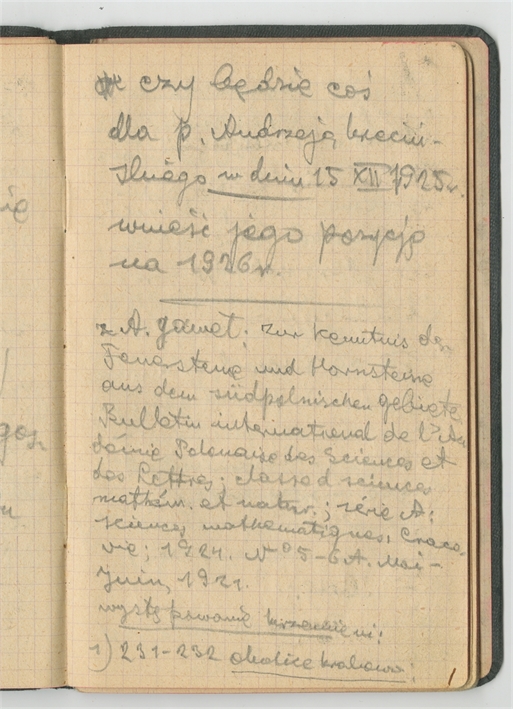 czy będzie coś
dla p. Andrzeja krciń-
skiego w dniu 15 XII 1925r.
wnieść jego pozycję
na 1926r.
z A. gaweł: zur kenntnis der
Feuersteine und Hornsteine
aus dem südpolnischen gebiete
Bulletin international de l'Aca
démie Polonaise des Sciences et
des Lettres; classe d sciences
mathém. et natur.; série A:
sciences mathematiques, Craco
vie; 1924. N° 5-6 A. Mai-
Juin, 1921.
występowanie krzemieni:
1) 231-232 okolice krakowa:
ię
goś
1